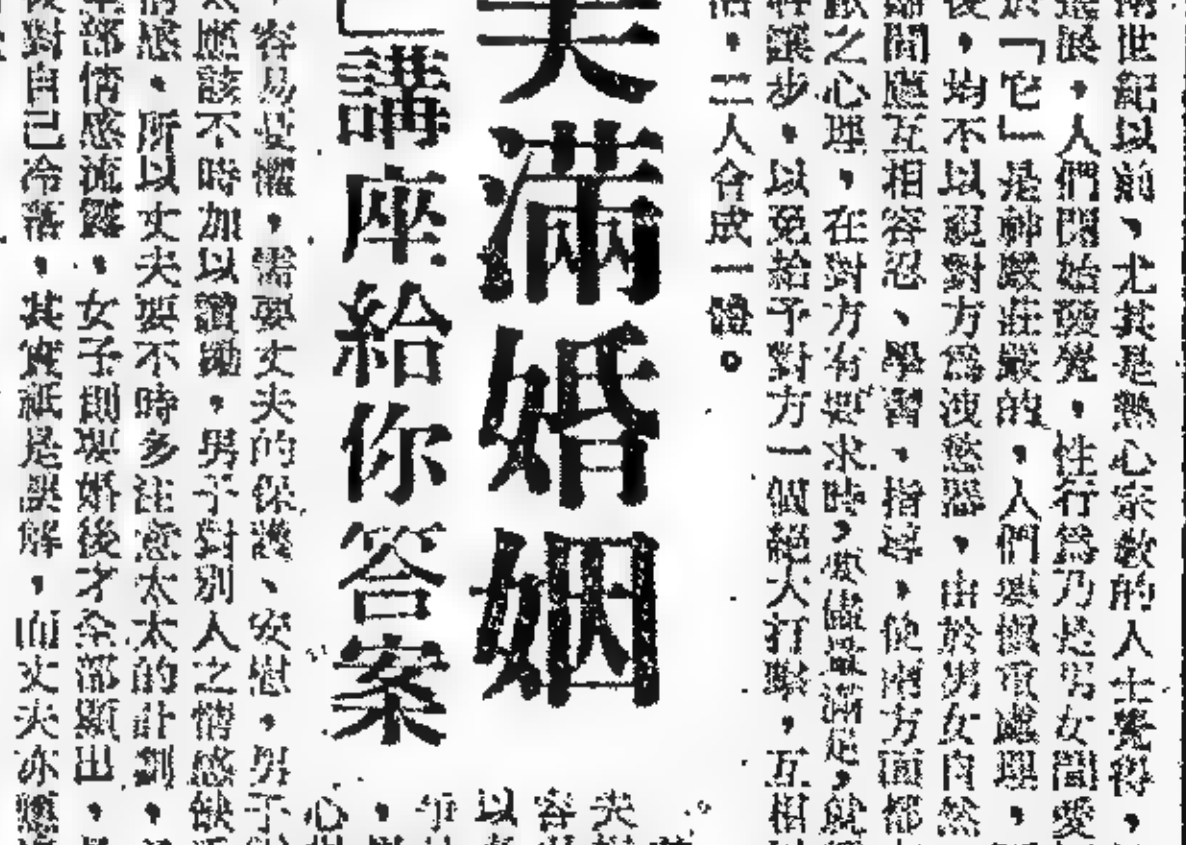 兩世紀以前、尤其是熱心宗教的人士覺得，
進展，人們開始發覺，性行為乃是男女間愛
於「它」是神嚴莊嚴的，人們要慎重處理，
後，均不以絕對方為洩慾器，由於男女自然
間應互相容忍、學習，指導，使兩方面都
之心理，在對方有要求時，要儘量滿足，就
讓步，以免給予對方一個絕大打擊，互相
活，二人合成一體。
美滿婚姻
講座給你答案
夫
容
以
爭
心
容易憂懼，需要丈夫的保護、安慰，男子
應該不時加以讚勵，男子對別人之情感缺
情感，所以丈夫要不時多注意太太的計劃，
全部情感流露，女子則要婚後才全部顯出，
對自己冷落，其實祇是誤解，而丈夫亦應